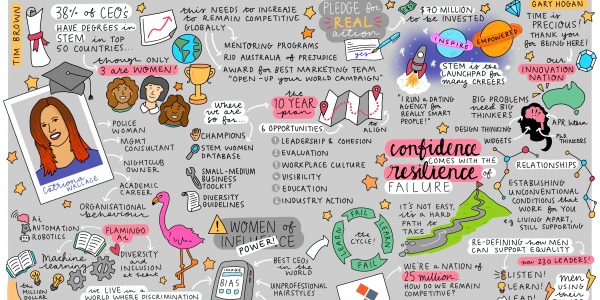 TIM BROWN
38% OF CEO's
HAVE DEGREES in
STEM in TOP
50 COUNTRIES...
though only
3 ARE WOMEN!
this NEEDS to INCREASE
to REMAIN COMPETITIVE
GLOBALLY
MENTORING PROGRAMS
RID AUSTRALIA OF PREJUDICE
AWARD for BEST MARKETING TEAM
"OPEN-UP YOUR WORLD CAMPAIGN"
PLEDGE for
REAL
action
yes
$70 MILLION
to BE INVESTED
INSPIRE
EMPOWERED
STEM is the
LAUNCHPAD for
MANY CAREERS
GARY HOGAN
TIME is
PRECIOUS!
THANK you
for BEING HERE!
our
INNOVATION
NATION
Catriona
WALLACE
POLICE
WOMAN
MGMT
CONSULTANT
NIGHTCLUB
OWNER
ACADEMIC
CAREER
ORGANISATIONAL
behaviour
Where
we are
so far...
CHAMPIONS
STEM WOMEN
DATABASE
SMALL-MEDIUM
BUSINESS
TOOLKIT
DIVERSITY
GUIDELINES
the
10 YEAR
plan
to
ALIGN
6 OPPORTUNITIES
1 LEADERSHIP & COHESION
2 EVALUATION
3 WORKPLACE CULTURE
4 VISIBILITY
5 EDUCATION
6 INDUSTRY ACTION
"I RUN a DATING
AGENCY for
REALLY SMART
PEOPLE!"
BIG PROBLEMS
need BIG
THINKERS
DESIGN THINKING
WIDGETS
APR Intern
PhD
THINKERS
confidence
COMES WITH the
resilience of
FAILURE
IT'S NOT EASY,
it's a HARD
PATH to
TAKE
RELATIONSHIPS
ESTABLISHING
UNCONVENTIONAL
CONDITIONS that
WORK for YOU
eg LIVING APART,
STILL SUPPORTING
AI
AUTOMATION
ROBOTICS
Machine
learning
the
MILLION
DOLLAR
FLAMINGO
AI
DIVERSITY
and
INCLUSION at
heart
WE LIVE in a
WORLD WHERE
DISCRIMINATION
WOMEN OF
INFLUENCE
POWER!
IMAGE
BIAS
BEST CEOs
in the
WORLD
UNPROFESSIONAL
HAIRSTYLES
FAIL
LEARN
FAIL
LEARN
the
CYCLE!
WE'RE a NATION OF
25 million
HOW do WE REMAIN
COMPETITIVE?
RE-DEFINING how MEN
CAN SUPPORT EQUALITY
now 230 LEADERS!
LISTEN!
LEARN!
LEAD!
MEN
USING